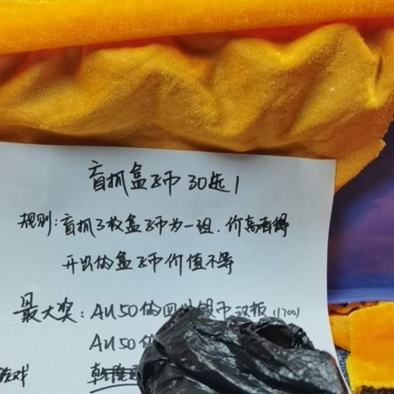 盲抓盒子币 30选1
规则:盲抓3枚盒子币为一组.价高者得
开出的盒子币价值不等
最大奖:AU50的四川银币汉板(1700)
AU50的
游戏